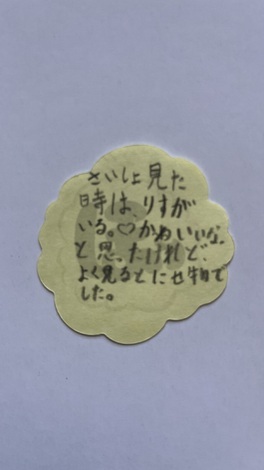 さいしょ見た
時は、りすが
いる。♡かわいいな。
と思ったけれど、
よく見るとにせ物で
した。